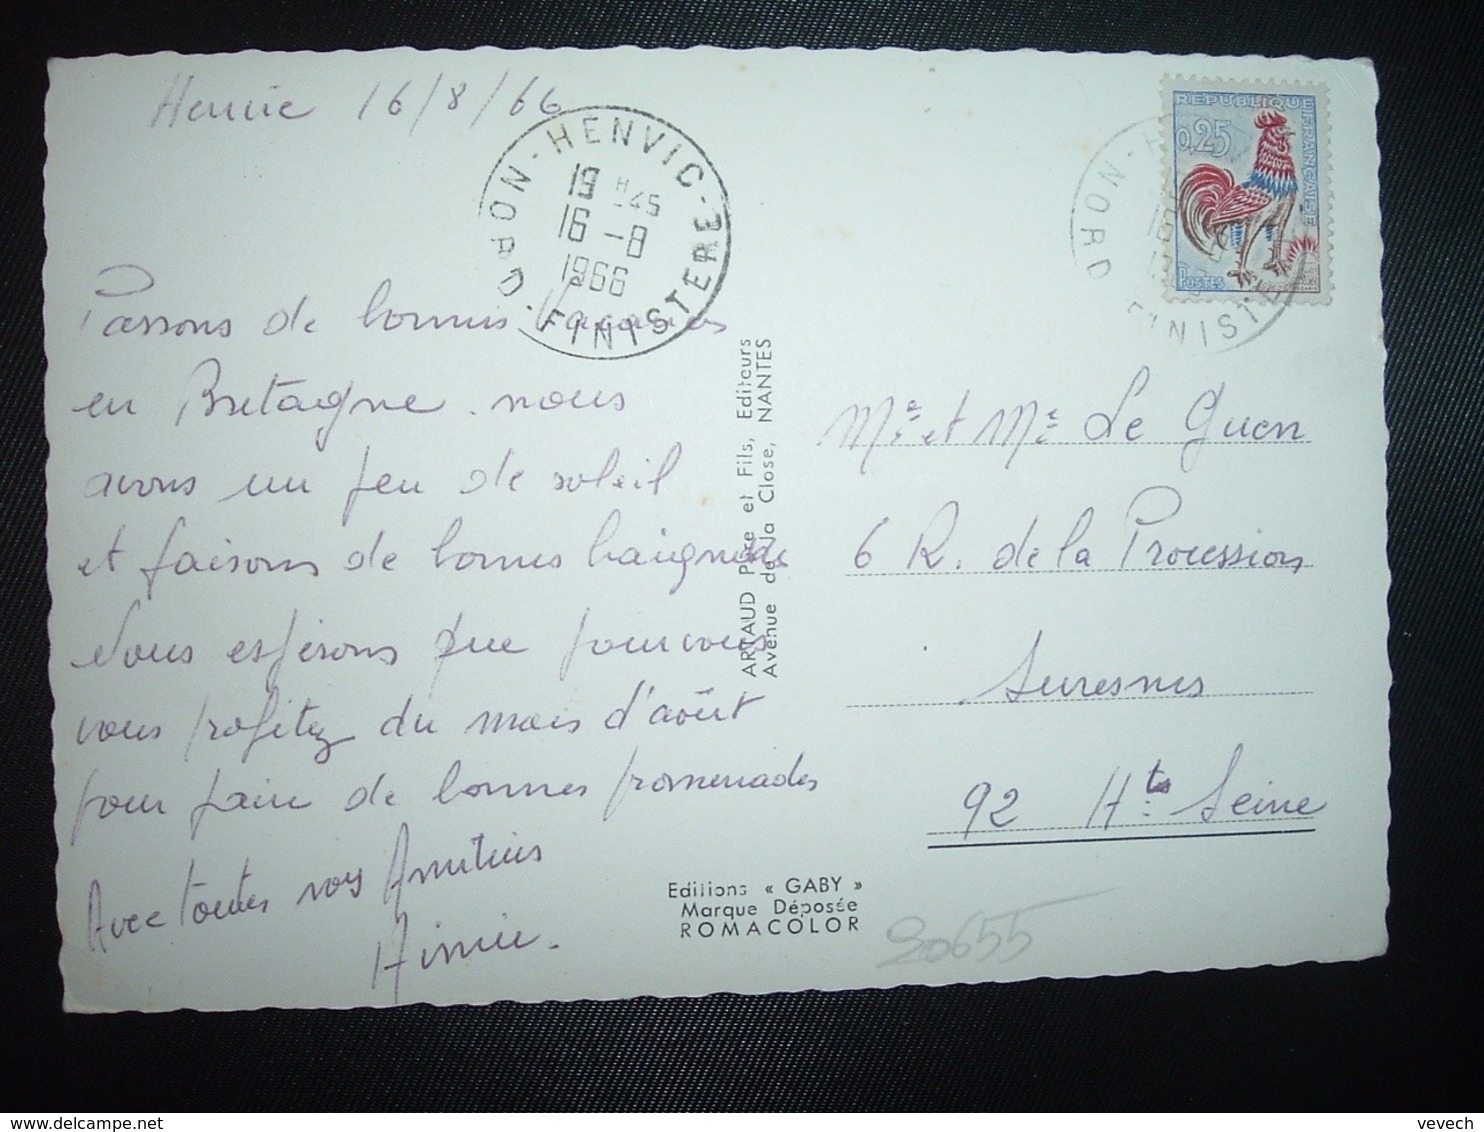 Henvic 16/8/66
HENVIC - NORD-FINISTERE
19 H 45
16 -8
1966
REPUBLIQUE FRANÇAISE
0,25
POSTES
NORD FINIST
Passons de bonnes Vacances
en Bretagne. nous
avons un peu de soleil
et faisons de bonnes baignades
Nous espérons que pour vous
vous profitez du mois d'août
pour faire de bonnes promenades
Avec toutes nos Amitiés
Aimée.
ARTAUD Père et Fils, Editeurs
Avenue de la Close, NANTES
Mr et Me Le Guen
6 R. de la Procession
Suresnes
92 Hts Seine
Editions « GABY »
Marque Déposée
ROMACOLOR
20655
vevech